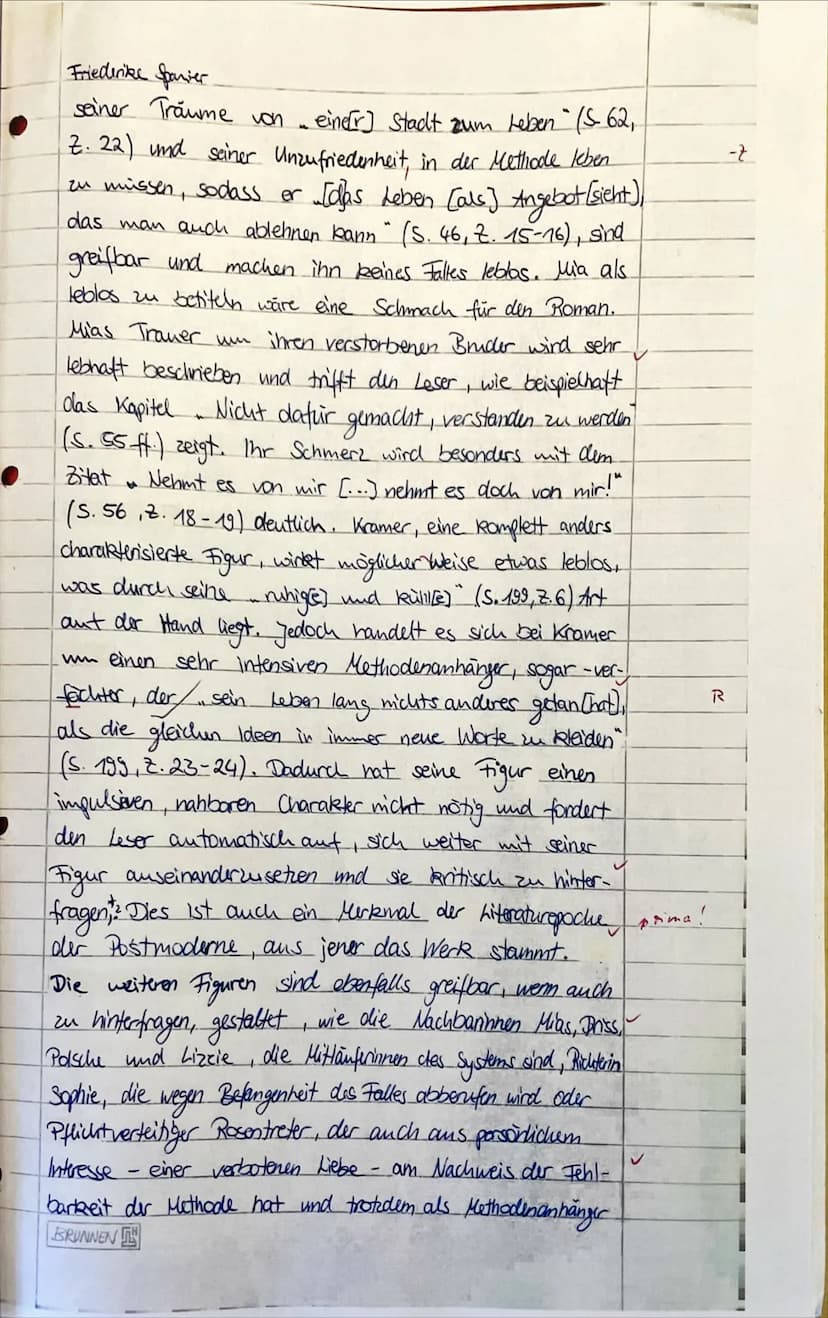 Friederike Spanier
seiner Träume von „eine[r] Stadt zum Leben" (S. 62,
Z. 22) und seiner Unzufriedenheit, in der Methode leben
-Z
zu müssen, sodass er „[d]as Leben [als] Angebot [sieht],
das man auch ablehnen kann" (S. 46, Z. 15-16), sind
greifbar und machen ihn keines Falles leblos. Mia als
leblos zu betiteln wäre eine Schmach für den Roman.
Mias Trauer um ihren verstorbenen Bruder wird sehr
lebhaft beschrieben und trifft den Leser, wie beispielhaft
das Kapitel „Nicht dafür gemacht, verstanden zu werden"
(S. 55 ff.) zeigt. Ihr Schmerz wird besonders mit dem
Zitat „Nehmt es von mir [...] nehmt es doch von mir!"
(S. 56, Z. 18-19) deutlich. Kramer, eine komplett anders
charakterisierte Figur, wirkt möglicher Weise etwas leblos,
was durch seine „ruhig[e] und kühl[e]" (S. 199, Z. 6) Art
auf der Hand liegt. Jedoch handelt es sich bei Kramer
um einen sehr intensiven Methodenanhänger, sogar -ver-
fechter, der „sein Leben lang nichts anderes getan [hat],
R
als die gleichen Ideen in immer neue Worte zu kleiden"
(S. 199, Z. 23-24). Dadurch hat seine Figur einen
impulsiven, nahbaren Charakter nicht nötig und fordert
den Leser automatisch auf, sich weiter mit seiner
Figur auseinanderzusetzen und sie kritisch zu hinter-
fragen. Dies ist auch ein Merkmal der Literaturepoche
prima!
der Postmoderne, aus jener das Werk stammt.
Die weiteren Figuren sind ebenfalls greifbar, wenn auch
zu hinterfragen, gestaltet, wie die Nachbarinnen Mias, Driss,
Polsche und Lizzie, die Mitläuferinnen des Systems sind, Richterin
Sophie, die wegen Befangenheit des Falles abberufen wird oder
Pflichtverteitiger Rosentreter, der auch aus persönlichem
Interesse – einer verbotenen Liebe – am Nachweis der Fehl-
barkeit der Methode hat und trotzdem als Methodenanhänger
BRUNNEN